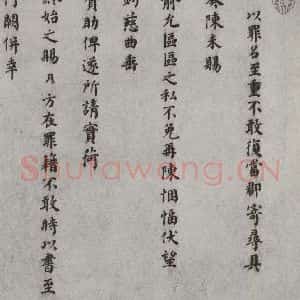 以罪名至重不敢復當御寄尋具
奏陳未賜
俞允區區之私不免再陳悃愊伏望
鈞慈曲垂
贊助俾遂所請實荷
終始之賜月方在罪籍不敢時以書至
行闕併幸
Shufawang.CN